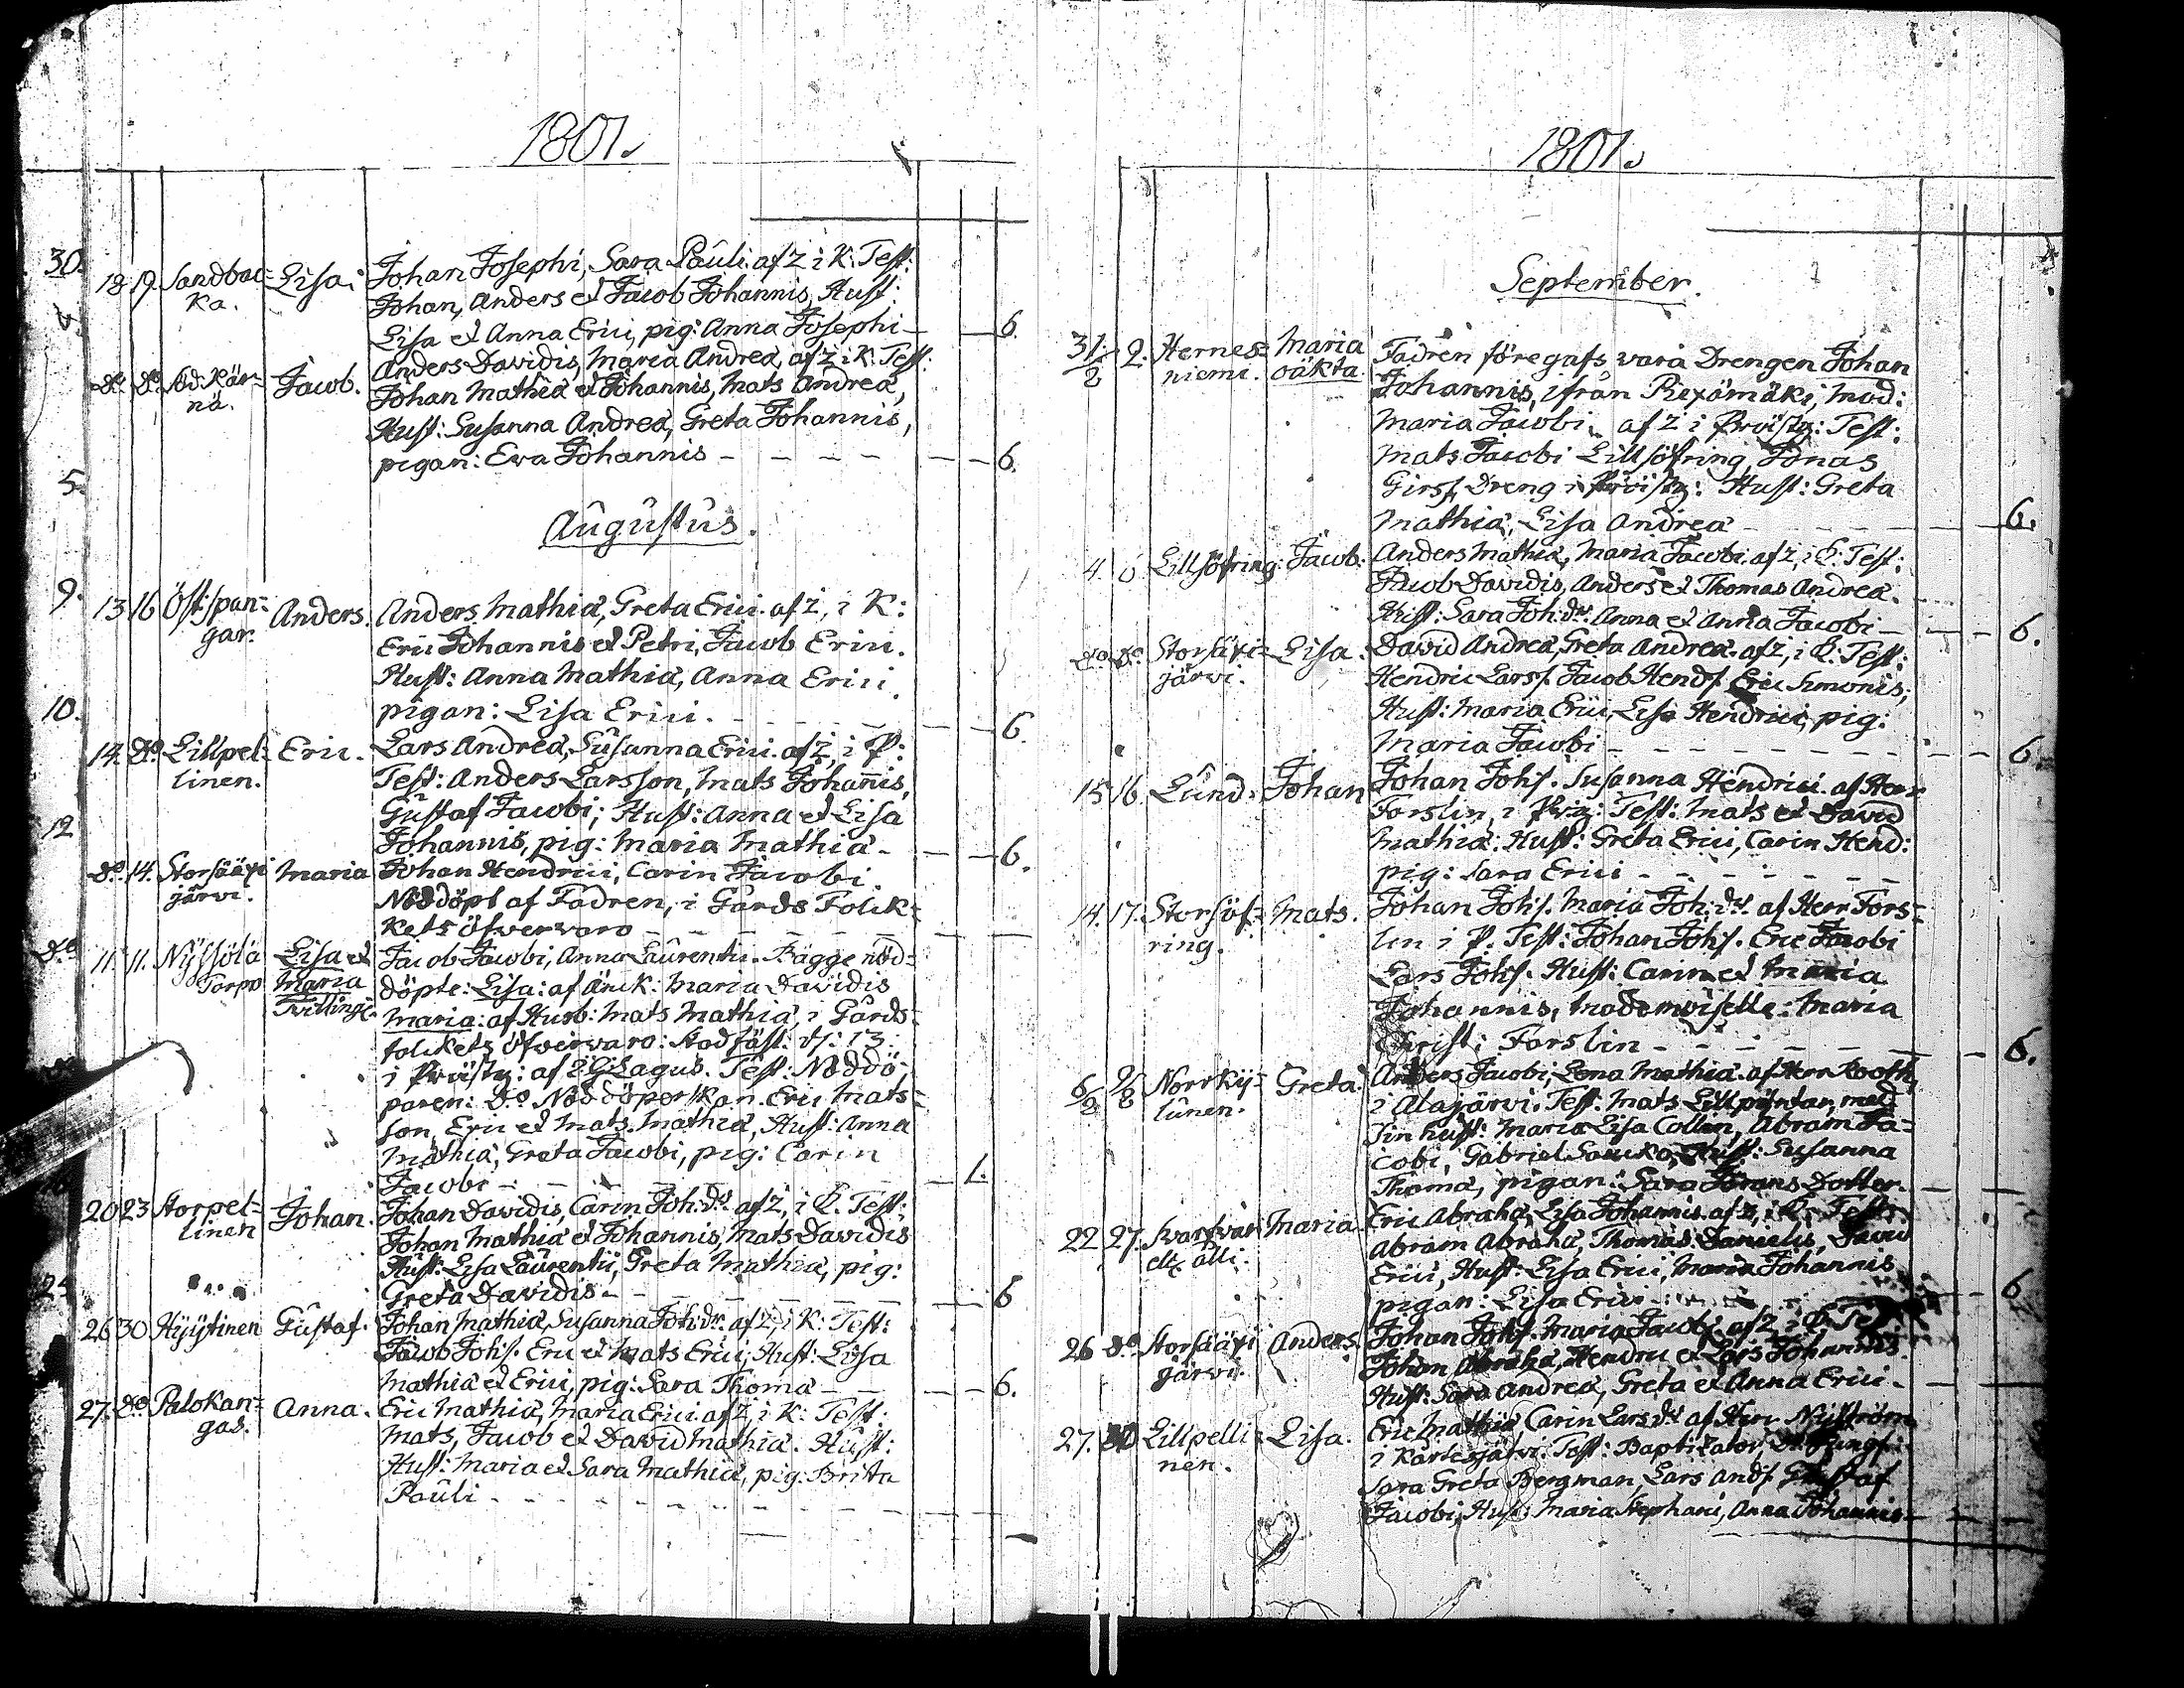 1801.
30.
18 19. Sandbac= Lisa: Johan Josephi, Sara Pauli. af Z i K: Test:
ka. Johan, Anders et Jacob Johannis, Hust:
Lisa et Anna Erici, pig: Anna Josephi — — 6.
do. do. Kär= Jacob. Anders Davidis, Maria Andreæ, af Z i K. Test:
nä. Johan Mathiæ et Johannis, Mats Andreæ,
Hust: Susanna Andreæ, Greta Johannis,
pigan: Eva Johannis — — — — — 6.
5.
Augustus.
9.
13 16 Öst: span= Anders. Anders Mathiæ, Greta Erici. af Z, i K:
gar. Eric Johannis et Petri, Jacob Erici.
Hust: Anna Mathiæ, Anna Erici,
10. pigan: Lisa Erici. — — — — — 6.
14. do. Lillpel= Eric. Lars Andreæ, Susanna Erici. af Z, i P:
linen. Test: Anders Larsson, Mats Johannis,
Gustaf Jacobi; Hust: Anna et Lisa
12 Johannis, pig: Maria Mathiæ — — — 6.
do. 14. Storsääxi Maria Johan Hendrici, Carin Jacobi
järvi. Nöddöpt af Fadren, i Gårds Folck=
kets öfvervaro — — — — —
do 11. 11. Nysjölä Lisa et Jacob Jacobi, Anna Laurentii. Bägge nöd=
Torpo Maria döpte: Lisa: af änck: Maria Davidis
Tvillingr. Maria: af Husb: Mats Mathiæ, i Gårds=
folckets öfvervaro: Stadfäst: d: 13.
i Prästg: af Lagus. Test: Nöddö=
paren: do. Nöddöperskan. Eric Mats=
son, Eric et Mats Mathiæ, Hust: Anna
Mathiæ, Greta Jacobi, pig: Carin
Jacobi — — — — — 1.
20 23 Storpel= Johan. Johan Davidis, Carin Joh: dr af Z, i K. Test:
linen Johan Mathiæ et Johannis, Mats Davidis
Hust: Lisa Laurentii, Greta Mathiæ, pig:
Greta Davidis — — — — — 6
26 30 Hyytinen Gustaf. Johan Mathiæ, Susanna Joh: dr af Z, i K: Test:
Jacob Johs. Eric et Mats Erici, Hust: Lisa
Mathiæ et Erici, pig: Sara Thomæ — — — 6.
27. do Palokan= Anna. Eric Mathiæ, Maria Erici. af Z, i K: Test:
gas. Mats, Jacob et David Mathiæ. Hust:
Hust: Maria et Sara Mathiæ, pig. Brita
Pauli — — — — —
1801.
September.
31/8 2. Hernes= Maria Fadren föregafs vara Drengen Johan
niemi. oäkta. Johannis, ifrån Rexämäki, Mod:
Maria Jacobi. af Z i Prästg: Test:
Mats Jacobi Lillsöfring, Jonas
Girss, Dreng i Prästg: Hust: Greta
Mathiæ, Lisa Andreæ — — — 6.
4. 6 Lillsöfring Jacob. Anders Mathiæ, Maria Jacobi. af Z, i K: Test:
Jacob Davidis, Anders et Thomas Andreæ.
Hust: Sara Joh: dr. Anna et Anna Jacobi — — 6.
do do. Storsäxi= Lisa. David Andreæ, Greta Andreæ. af Z, i K: Test:
järvi. Hendric Larss. Jacob Hends. Eric Simonis,
Hust: Maria Erici, Lisa Hendrici, pig:
Maria Jacobi — — — — — 6.
15 16 Lund. Johan Johan Johs. Susanna Hendrici. af Herr
Forslin, i Prg: Test: Mats et David
Mathiæ: Hust: Greta Erici, Carin Hend:
pig: Sara Erici — — — — —
14. 17. Storsöf= Mats. Johan Johs. Maria Joh: dr. af Herr Fors=
ring. lin i P. Test: Johan Johs. Eric Jacobi
Lars Johs. Hust: Carin et Maria
Johannis, Mademoiselle: Maria
Christ: Forslin — — — — — 6.
6/8 9/8 Norrky= Greta. Anders Jacobi, Lena Mathiæ. af Herr Rooth,
lunen. i Alajärvi. Test: Mats Lillpyntar, med
sin hust: Maria Lisa Collin, Abram Ja=
cobi, Gabriel Hust: Susanna
Thomæ, pigan: Sara Jörans Dotter.
22 27. Svartvar Maria. Eric Abrahæ, Lisa Johannis. af Z, i K: Test:
Abram Abrahæ, Thomas Danielis, David
Erici, Hust: Lisa Erici, Maria Johannis
pigan: Lisa Erici — — — 6
26 do. Storsääxi Anders. Johan Johs. Maria Jacobi. af Z i K: Test:
järvi. Johan Abrahæ, Hendric et Lars Johannis
Hust: Sara Andreæ, Greta et Anna Erici —
27. 30 Lillpelli= Lisa. Eric Mathiæ Carin Lars dr. af Herr Nyström
nen. i Kortesjärvi. Test: Baptizator, Jungf:
Sara Greta Bergman, Lars Ands. Gustaf
Jacobi, Hust: Maria Stephani, Anna Johannis —